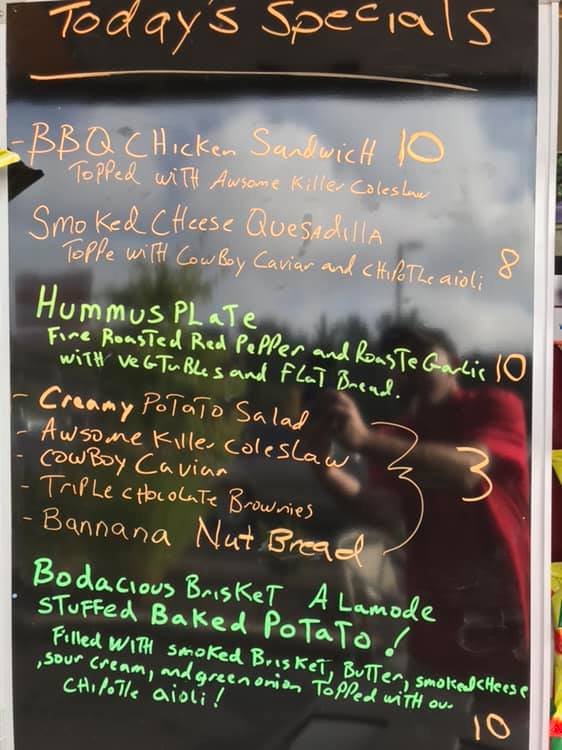 Today's Specials
- BBQ Chicken Sandwich 10
Topped with Awsome Killer Coleslaw
Smoked Cheese Quesadilla
Toppe with Cowboy Caviar and Chipothe aioli 8
Hummus Plate
Fire Roasted Red Pepper and Roaste Garlic 10
with Vegturbles and Flat Bread.
- Creamy Potato Salad
- Awsome Killer Coleslaw
- Cowboy Caviar
3
- Triple Chocolate Brownies
- Bannana Nut Bread
Bodacious Brisket A Lamode
Stuffed Baked Potato!
Filled with smoked Brisket, Butter, smoked cheese
, sour cream, and green onion Topped with our
Chipotle aioli!
10